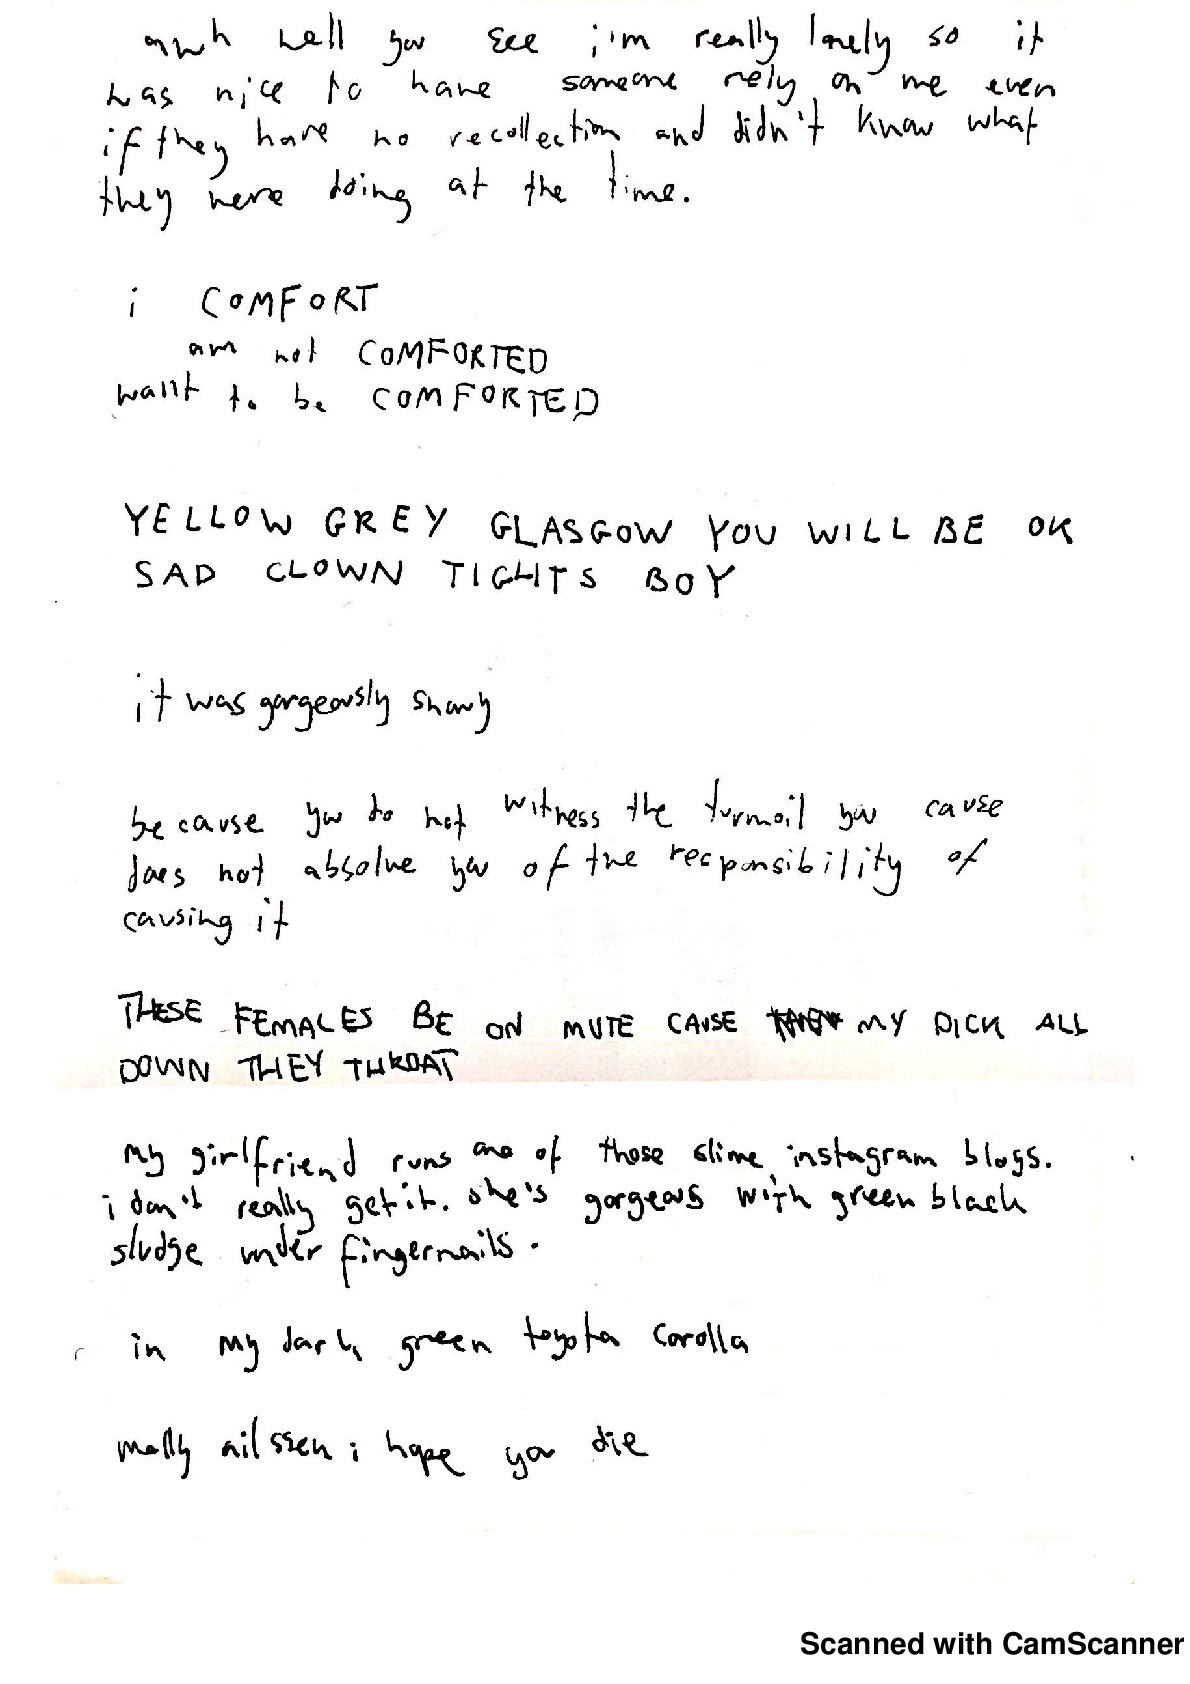 awh well you see i'm really lonely so it
was nice to have someone rely on me even
if they have no recollection and didn't know what
they were doing at the time.
i COMFORT
am not COMFORTED
want to be COMFORTED
YELLOW GREY GLASGOW YOU WILL BE OK
SAD CLOWN TIGHTS BOY
it was gorgeously snowy
because you do not witness the turmoil you cause
does not absolve you of the responsibility of
causing it
THESE FEMALES BE ON MUTE CAUSE MY DICK ALL
DOWN THEY THROAT
my girlfriend runs one of those slime instagram blogs.
i don't really get it. she's gorgeous with green black
sludge under fingernails.
in my dark green toyota corolla
molly nilssen i hope you die
Scanned with CamScanner